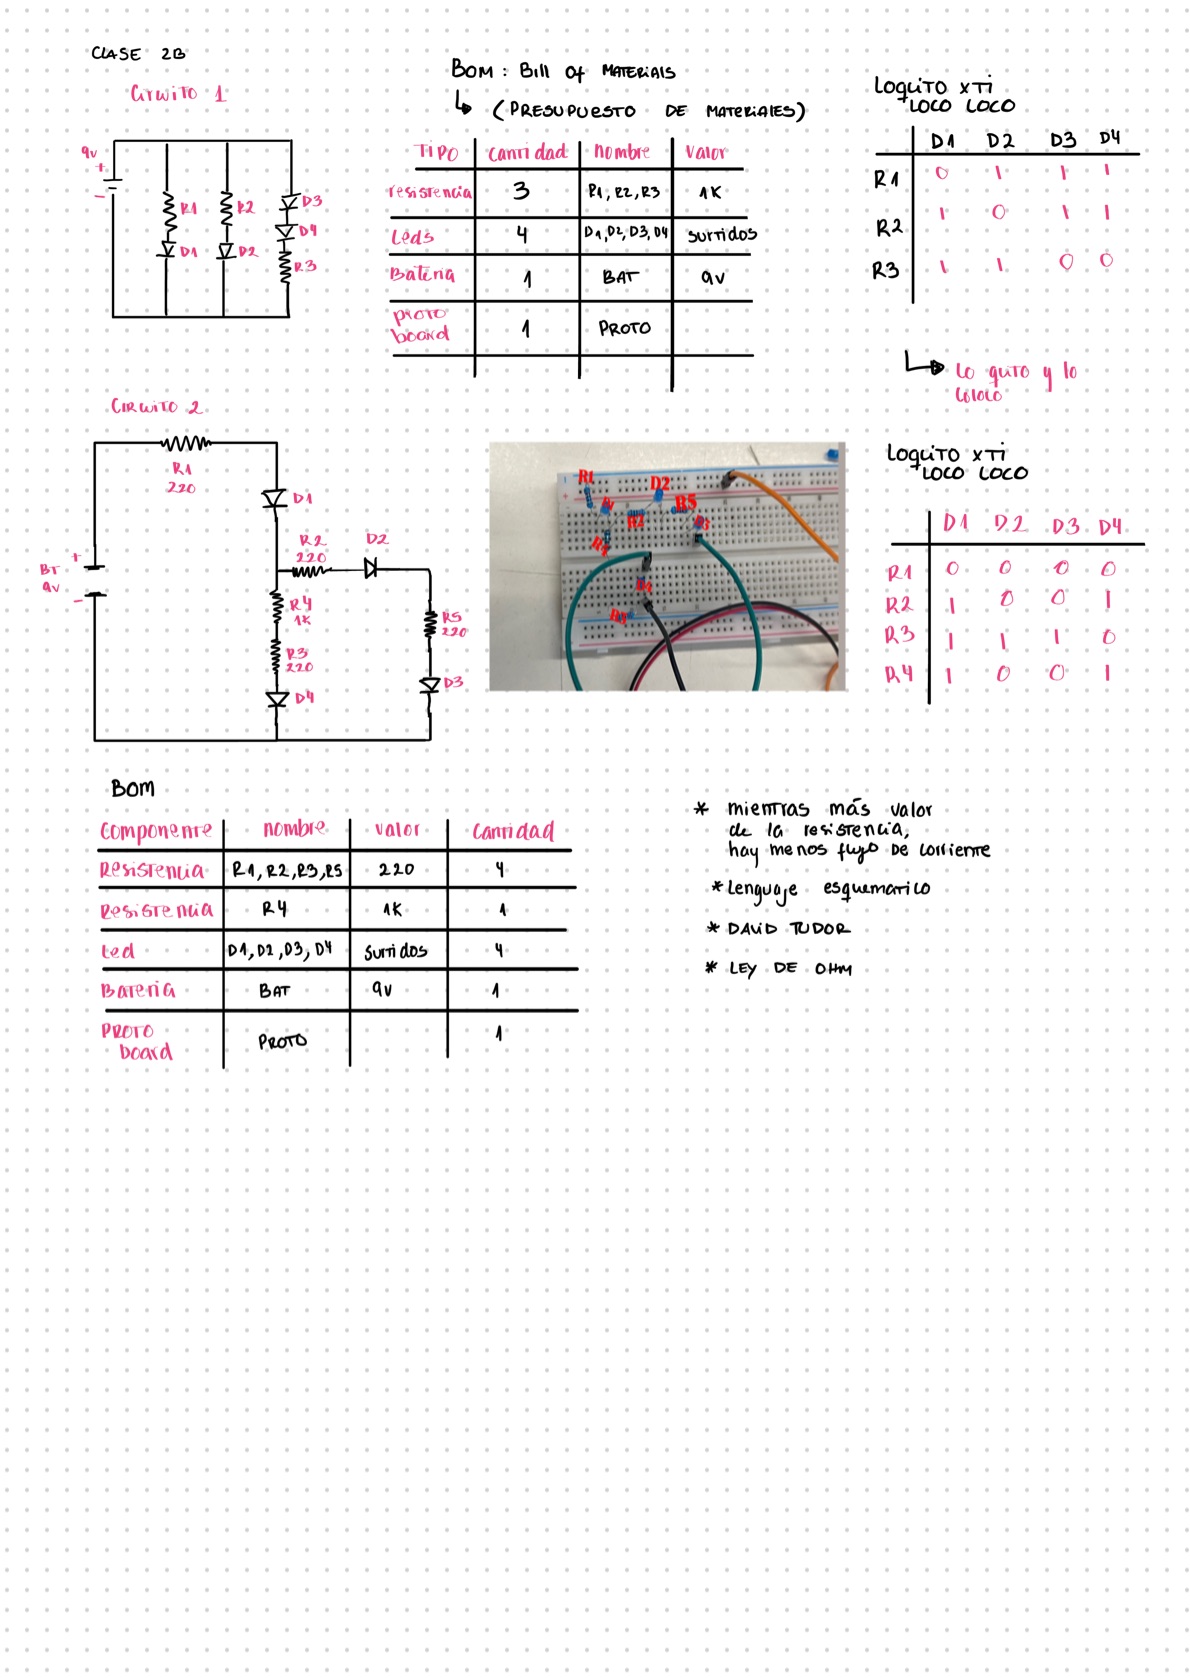 CLASE 2B
Circuito 1
9v
+
-
R1
R2
D3
D4
D1
D2
R3
BOM : Bill of MATERIAlS
(PRESUPUESTO DE MATERIALES)
TIPO cantidad nombre valor
resistencia 3 R1, R2, R3 1K
Leds 4 D1, D2, D3, D4 surtidos
Bateria 1 BAT 9v
proto
board 1 PROTO
LOQUITO XTi
LOCO LOCO
D1 D2 D3 D4
R1 0 1 1 1
R2 1 0 1 1
R3 1 1 0 0
Lo quito y lo
coloco
CIRCUITO 2
R1
220
D1
R2
220
D2
BT
9v
+
-
R4
1K
R3
220
D4
R5
220
D3
R1
D2
R5
R2
D3
D4
LOQUITO XTi
LOCO LOCO
D1 D2 D3 D4
R1 0 0 0 0
R2 1 0 0 1
R3 1 1 1 0
R4 1 0 0 1
BOM
componente nombre valor cantidad
Resistencia R1, R2, R3, R5 220 4
Resistencia R4 1K 1
Led D1, D2, D3, D4 surtidos 4
Bateria BAT 9v 1
PROTO
board PROTO 1
* mientras más valor
de la resistencia,
hay menos flujo DE corriente
* Lenguaje esquematico
* DAVID TUDOR
* LEY DE OHM